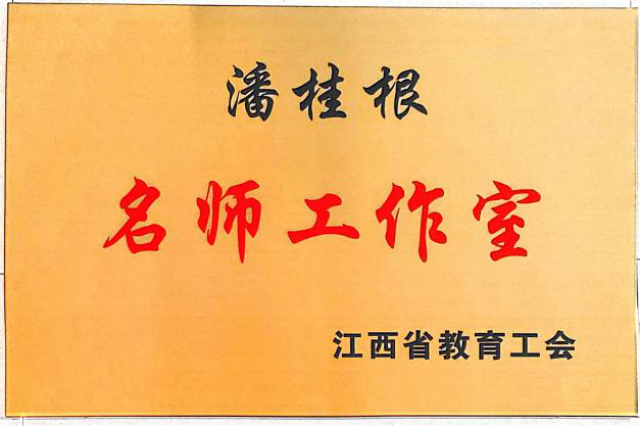 潘桂根
名师工作室
江西省教育工会